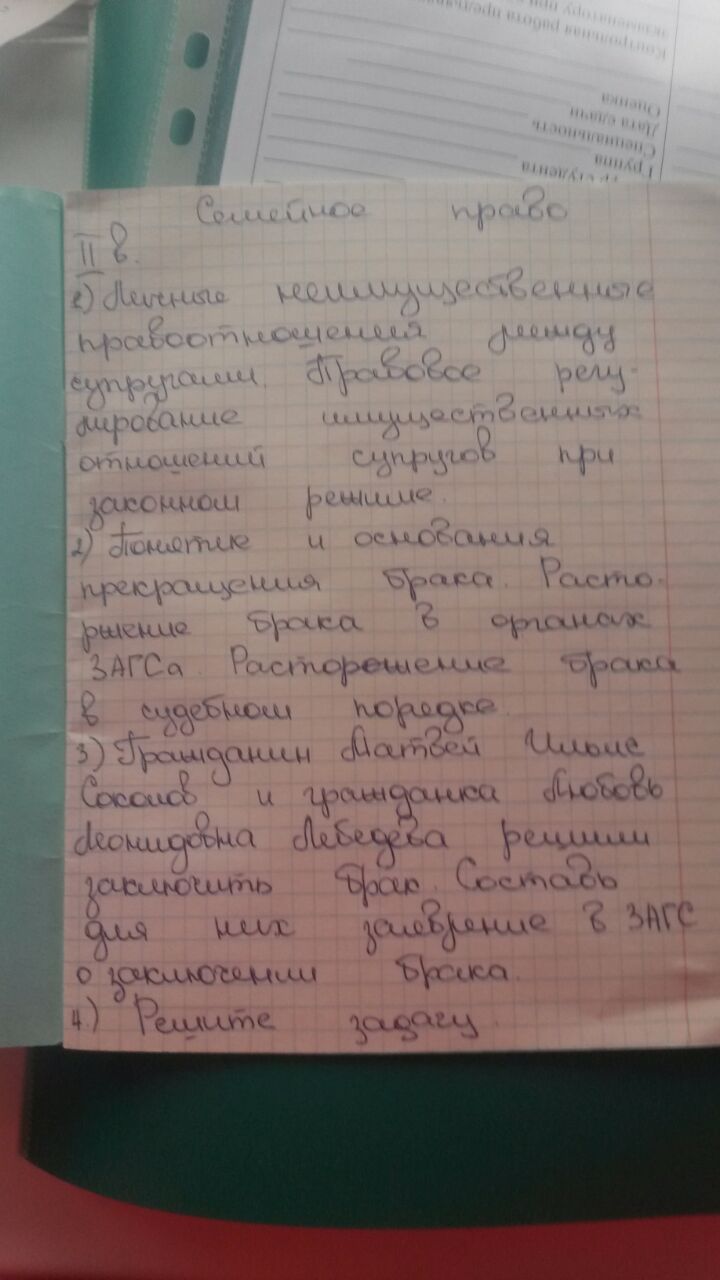 Контрольная работа предъявля
экзаменатору при
Оценка
Дата сдачи
Специальность
Группа
студента
Семейное право
II в.
1) Личные неимущественные
правоотношения между
супругами. Правовое регу-
лирование имущественных
отношений супругов при
законном режиме.
2) Понятие и основания
прекращения брака. Расто-
ржение брака в органах
ЗАГСа. Расторжение брака
в судебном порядке.
3) Гражданин Матвей Ильис
Соколов и гражданка Любовь
Леонидовна Лебедева решили
заключить брак. Составь
для них заявление в ЗАГС
о заключении брака.
4.) Решите задачу.